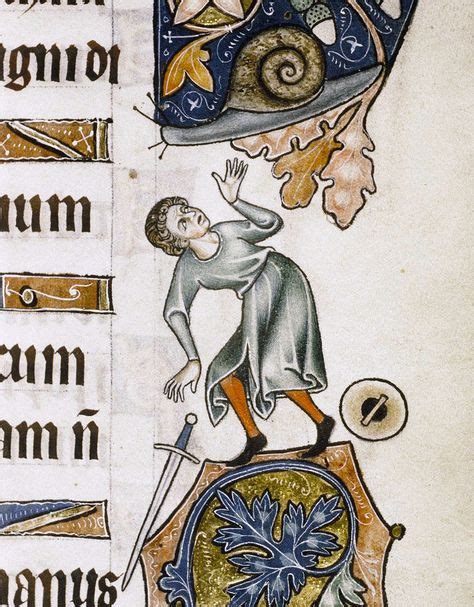 igni di
ium
cum
am n̄
manus